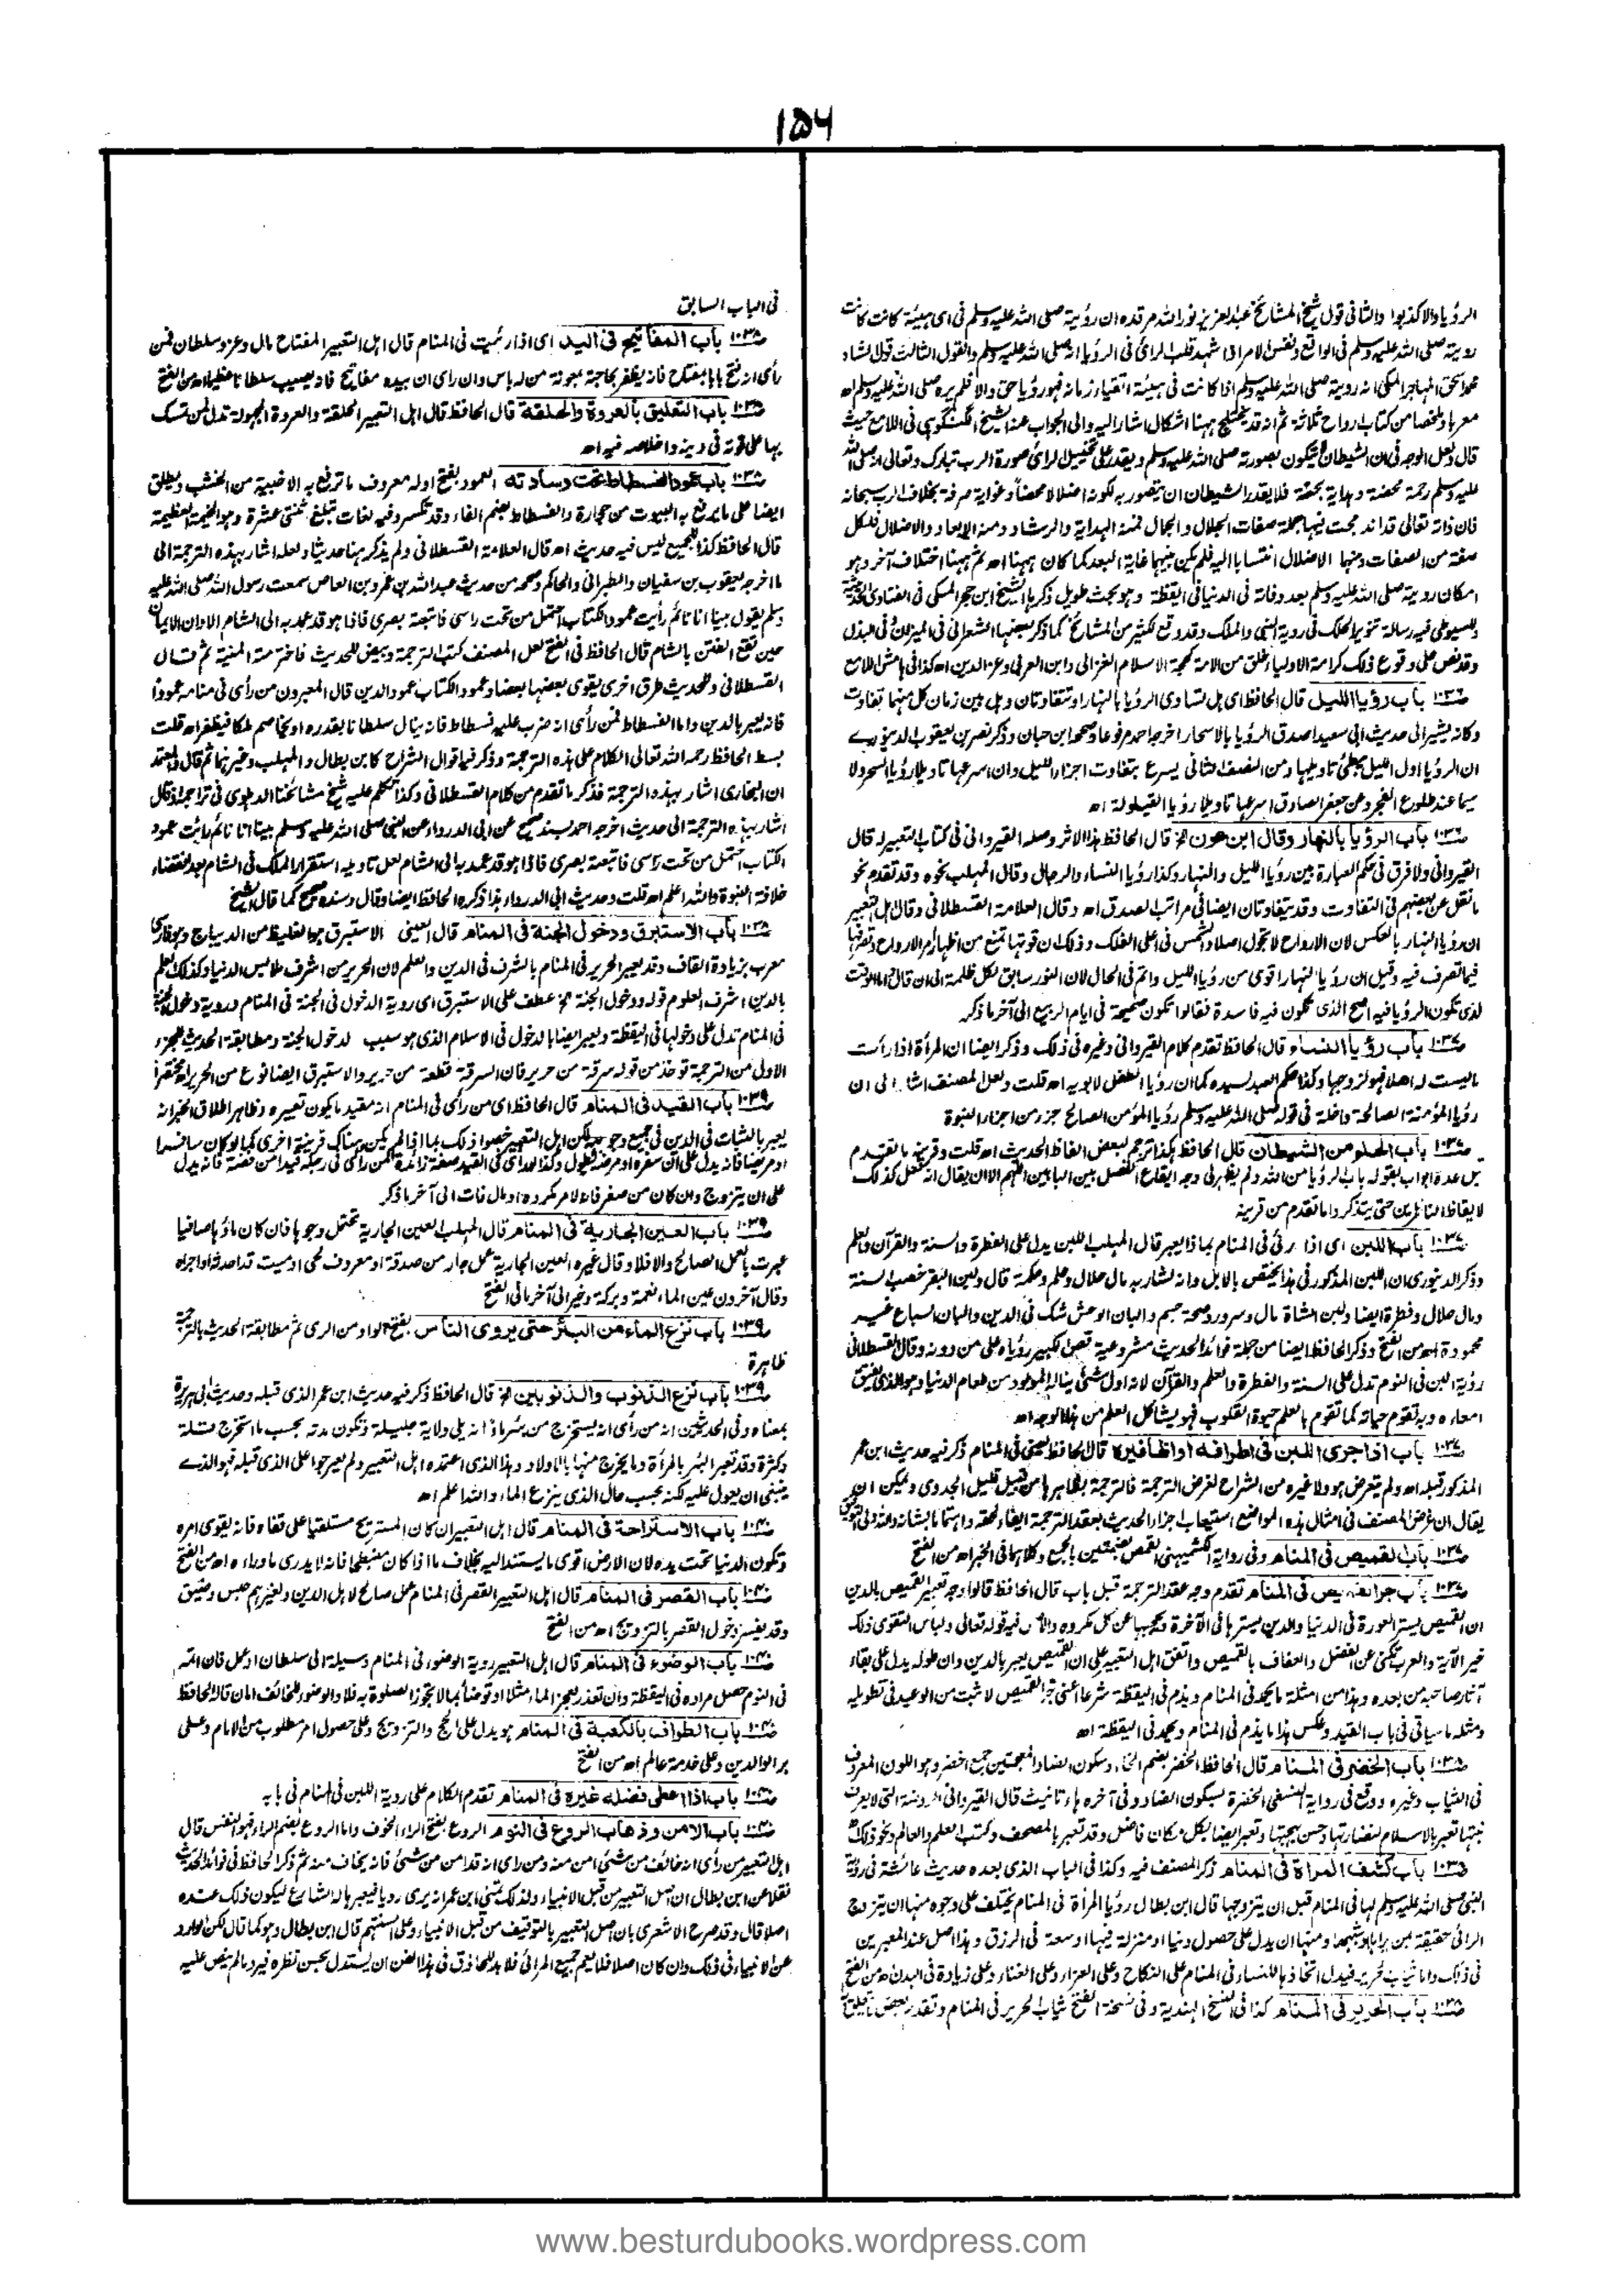 ١٥٦
الرؤيا والا كذبوا والثانى قول شيخ المشائخ عبد العزيز نور الله مرقده ان رؤيته صلى الله عليه وسلم فى اى هيئة كانت كانت
رويته صلى الله عليه وسلم فى الواقع ونفس الامر اذا شهد قلب الرائى فى الرؤيا انه صلى الله عليه وسلم والقول الثالث قول الشاه
محمد اسحق المهاجر المكى انه رويته صلى الله عليه وسلم اذا كانت فى هيئة اتقياء زمانه فهو رؤيا حق والا فلم يره صلى الله عليه وسلم اه
معربا وملخصا من كتاب ارواح ثلاثه ثم انه قد يختلج ههنا اشكال اشار اليه والى الجواب عنه الشيخ الگنگوهى فى اللامع حيث
قال ولعل الوجه فى ان الشيطان لا يكون بصورته صلى الله عليه وسلم ويقدر على تخييل الرائى صورة الرب تبارك وتعالى انه صلى الله
عليه وسلم رحمة محضة وهداية بحتة فلا يقدر الشيطان ان يتصور به لكونه اضلالا محضا وغواية صرفة بخلاف الرب سبحانه
فان ذاته تعالى قد اندمجت فيها جملة صفات الجلال والجمال فمنه الهداية والرشاد ومنه الابعاد والاضلال فلكل
صفة من الصفات ومنها الاضلال انتسابا اليه فلم يكن بينهما غاية البعد كما كان ههنا اه ثم ههنا اختلاف آخر وهو
امكان رويته صلى الله عليه وسلم بعد وفاته فى الدنيا فى اليقظة وهو بحث طويل ذكره الشيخ ابن حجر المكى فى الفتاوى الحديثية
وللسيوطى فيه رسالة تنوير الحلك فى روية النبى والملك وقد وقع لكثير من المشائخ كما ذكر بعضها الشعرانى فى الميزان وفى البذل
وقد نص على وقوع ذلك كرامة الاولياء خلق من الامة كحجة الاسلام الغزالى وابن العربى وعز الدين اه كذا فى هامش اللامع
١٠٣٦ باب رؤيا الليل قال الحافظ اى هل تساوى الرؤيا بالنهار او تتفاوتان وهل بين زمان كل منهما تفاوت
وكانه يشير الى حديث ابى سعيد اصدق الرؤيا بالاسحار اخرجه احمد مرفوعا وصححه ابن حبان وذكر نصر بن يعقوب الدينورى
ان الرؤيا اول الليل يبطئ تاويلها ومن النصف الثانى يسرع بتفاوت اجزاء الليل وان اسرعها تاويلا رؤيا السحر ولا
سيما عند طلوع الفجر وعن جعفر الصادق اسرعها تاويلا رؤيا القيلولة اه
١٠٣٦ باب الرؤيا بالنهار وقال ابن عون الخ قال الحافظ هذا الاثر وصله القيروانى فى كتاب التعبير له قال
القيروانى ولا فرق فى حكم العبارة بين رؤيا الليل والنهار وكذا رؤيا النساء والرجال وقال المهلب نحوه وقد تقدم نحو
ما نقل عن بعضهم فى التفاوت وقد يتفاوتان ايضا فى مراتب الصدق اه وقال العلامة القسطلانى وقال اهل التعبير
ان رؤيا النهار بالعكس لان الارواح لا تجول اصلا والشمس فى اعلى الفلك وذلك ان قوتها تمنع من اظهار امر الارواح وتصرفها
فيما تصرف فيه وقيل ان رؤيا النهار اقوى من رؤيا الليل واتم فى الحال لان النور سابق لكل ظلمة الى ان قال واما الوقت
الذى تكون الرؤيا فيه اصح الذى تكون فيه فاسدة فقالوا تكون صحيحة فى ايام الربيع الى آخر ما ذكر
١٠٣٧ باب رؤيا النساء قال الحافظ تقدم كلام القيروانى وغيره فى ذلك وذكر ايضا ان المرأة اذا رأت
ما ليست له اهلا فهو لزوجها وكذا حكم العبد لسيده كما ان رؤيا الطفل لابويه اه قلت ولعل المصنف اشار الى ان
رؤيا المؤمنة الصالحة داخلة فى قوله صلى الله عليه وسلم رؤيا المؤمن الصالح جزء من اجزاء النبوة
١٠٣٧ باب الحلم من الشيطان قال الحافظ هكذا ترجم لبعض الفاظ الحديث اه قلت وقرينة ما تقدم
قبل عدة ابواب بقوله باب الرؤيا من الله ولم يظهر لى وجه ايقاع الفصل بين البابين اللهم الا ان يقال انه فعل كذلك
لايقاظ الناظرين حتى يتذكروا ما تقدم من قرينة
١٠٣٧ باب اللبن اى اذا رئى فى المنام بماذا يعبر قال المهلب اللبن يدل على الفطرة والسنة والقرآن والعلم
وذكر الدينورى ان اللبن المذكور فى هذا يختص بالابل وانه لشاربه مال حلال وعلم وحكمة قال ولبن البقر خصب السنة
ومال حلال وفطرة ايضا ولبن الشاة مال وسرور وصحة جسم والبان الوحش شك فى الدين والبان السباع غير
محمودة اه من الفتح وذكر الحافظ ايضا من جملة فوائد الحديث مشروعية قص الكبير رؤياه على من دونه وقال القسطلانى
رؤية اللبن فى النوم تدل على السنة والفطرة والعلم والقرآن لانه اول شئ يناله المولود من طعام الدنيا وهو الذى يفتق
امعاءه وبه تقوم حياته كما تقوم بالعلم حيوة القلوب فهو يشاكل العلم من هذا الوجه اه
١٠٣٧ باب اذا جرى اللبن فى اطرافه او اظافيره قال الحافظ يعنى فى المنام ذكر فيه حديث ابن عمر
المذكور قبله اه ولم يتعرض هو ولا غيره من الشراح لغرض الترجمة فالترجمة بظاهرها من قبيل قليل الجدوى ويمكن ان
يقال ان غرض المصنف فى امثال هذه المواضع استيعاب اجزاء الحديث بعقد الترجمة ايفاء لحقه واهتماما بشانه والله ولى التوفيق
١٠٣٧ باب القميص فى المنام وفى رواية الكشميهنى القمص بضمتين بالجمع وكلاهما فى الخبر اه من الفتح
١٠٣٧ باب جر القميص فى المنام تقدم وجه عقد الترجمة قبل باب قال الحافظ قالوا وجه تعبير القميص بالدين
ان القميص يستر العورة فى الدنيا والدين يسترها فى الآخرة ويحجبها عن كل مكروه والاصل فيه قوله تعالى ولباس التقوى ذلك
خير الآية والعرب تكنى عن الفضل والعفاف بالقميص واتفق اهل التعبير على ان القميص يعبر بالدين وان طوله يدل على بقاء
آثار صاحبه من بعده وهذا من امثلة ما يحمد فى المنام ويذم فى اليقظة شرعا اعنى جر القميص لما ثبت من الوعيد فى تطويله
ومثله ما سياتى فى باب القيد وعكس هذا ما يذم فى المنام ويحمد فى اليقظة اه
١٠٣٨ باب الخضر فى المنام قال الحافظ الخضر بضم الخاء وسكون الضاد المعجمتين جمع اخضر وهو اللون المعروف
فى الثياب وغيره ووقع فى رواية النسفى الخضرة بسكون الضاد وفى آخره هاء تانيث قال القيروانى الروضة التى لا يعرف
نبتها تعبر بالاسلام لنضارتها وحسن بهجتها وتعبر ايضا بكل مكان فاضل وقد تعبر بالمصحف وكتب العلم والعالم ونحو ذلك
١٠٣٨ باب كشف المرأة فى المنام ذكر المصنف فيه وكذا فى الباب الذى بعده حديث عائشة فى رؤية
النبى صلى الله عليه وسلم لها فى المنام قبل ان يتزوجها قال ابن بطال رؤيا المرأة فى المنام يختلف على وجوه منها ان يتزوج
الرائى حقيقة بمن يراها او شبهها ومنها ان يدل على حصول دنيا او منزلة فيها او سعة فى الرزق وهذا اصل عند المعبرين
فى ذلك واما ثياب الحرير فيدل اتخاذها للنساء فى المنام على النكاح وعلى العزاء وعلى الغناء وعلى زيادة فى البدن اه من الفتح
١٠٣٨ باب الحرير فى المنام كذا فى النسخ الهندية وفى نسخة الفتح ثياب الحرير فى المنام وتقدم بعض ما يتعلق
فى الباب السابق
١٠٣٨ باب المفاتيح فى اليد اى اذا رئيت فى المنام قال اهل التعبير المفتاح مال وعز وسلطان فمن
رأى انه فتح بابا بمفتاح فانه يظفر بحاجة بمعونة من له باس وان رأى ان بيده مفاتيح فانه يصيب سلطانا عظيما اه من الفتح
١٠٣٨ باب التعليق بالعروة والحلقة قال الحافظ قال اهل التعبير الحلقة والعروة المجهولة تدل لمن تمسك
بها على قوته فى دينه واخلاصه فيه اه
١٠٣٨ باب عمود الفسطاط تحت وسادته العمود بفتح اوله معروف ما ترفع به الاخبية من الخشب ويطلق
ايضا على ما يرفع به البيوت من حجارة والفسطاط بضم الفاء وقد تكسر وفيه لغات تبلغ ثنتى عشرة وهو الخيمة العظيمة
قال الحافظ كذا للجميع ليس فيه حديث اه قال العلامة القسطلانى ولم يذكر هنا حديثا ولعله اشار بهذه الترجمة الى
ما اخرجه يعقوب بن سفيان والطبرانى والحاكم وصححه من حديث عبد الله بن عمرو بن العاص سمعت رسول الله صلى الله عليه
وسلم يقول بينا انا نائم رأيت عمود الكتاب احتمل من تحت راسى فاتبعته بصرى فاذا هو قد عمد به الى الشام الا وان الايمان
حين تقع الفتن بالشام قال الحافظ فى الفتح لعل المصنف كتب الترجمة وبيض للحديث فاخترمته المنية ثم قال
القسطلانى وللحديث طرق اخرى يقوى بعضها بعضا وعمود الكتاب عمود الدين قال المعبرون من رأى فى منامه عمودا
فانه يعبر بالدين واما الفسطاط فمن رأى انه ضرب عليه فسطاط فانه ينال سلطانا بقدره او يخاصم ملكا فيظفر اه قلت
بسط الحافظ رحمه الله تعالى الكلام على هذه الترجمة وذكر فيه اقوال الشراح كابن بطال والمهلب وغيرهما ثم قال والمعتمد
ان البخارى اشار بهذه الترجمة فذكر ما تقدم من كلام القسطلانى وكذا تكلم عليه شيخ مشائخنا الدهلوى فى تراجمه وقال
اشار بهذه الترجمة الى حديث اخرجه احمد بسند صحيح عن ابى الدرداء عن النبى صلى الله عليه وسلم بينا انا نائم رأيت عمود
الكتاب احتمل من تحت راسى فاتبعته بصرى فاذا هو قد عمد به الى الشام لعل تاويله استقرار الملك فى الشام بعد انقضاء
خلافة النبوة والله اعلم اه قلت وحديث ابى الدرداء هذا ذكره الحافظ ايضا وقال وسنده صحيح كما قال الشيخ
١٠٣٨ باب الاستبرق ودخول الجنة فى المنام قال العينى الاستبرق هو الغليظ من الديباج وهو فارسى
معرب بزيادة القاف وقد يعبر الحرير فى المنام بالشرف فى الدين والعلم لان الحرير من اشرف ملابس الدنيا وكذلك العلم
بالدين اشرف العلوم قوله ودخول الجنة الخ عطف على الاستبرق اى روية الدخول فى الجنة فى المنام وروية دخول الجنة
فى المنام تدل على دخولها فى اليقظة ويعبر ايضا بالدخول فى الاسلام الذى هو سبب لدخول الجنة ومطابقة الحديث للجزء
الاول من الترجمة توخذ من قوله سرقة من حرير فان السرقة قطعة من حرير والاستبرق ايضا نوع من الحرير اه مختصرا
١٠٣٩ باب القيد فى المنام قال الحافظ اى من رأى فى المنام انه مقيد ما يكون تعبيره وظاهر اطلاق الخبر انه
يعبر بالثبات فى الدين فى جميع وجوهه لكن اهل التعبير خصوا ذلك بما اذا لم يكن هناك قرينة اخرى كما لو كان مسافرا
او مريضا فانه يدل على ان سفره او مرضه يطول وكذا لو رأى فى القيد صفة زائدة كمن رأى فى رجله قيدا من فضة فانه يدل
على ان يتزوج وان كان من صفر فانه لامر مكروه او مال فات الى آخر ما ذكر
١٠٣٩ باب العين الجارية فى المنام قال المهلب العين الجارية تحتمل وجوها فان كان ماؤها صافيا
عبرت بالعمل الصالح والا فلا وقال غيره العين الجارية عمل جار من صدقة او معروف لحى او ميت قد احدثه او اجراه
وقال آخرون عين الماء نعمة وبركة وخير الى آخر ما فى الفتح
١٠٣٩ باب نزع الماء من البئر حتى يروى الناس بفتح الواو من الرى ثم مطابقة الحديث بالترجمة
ظاهرة
١٠٣٩ باب نزع الذنوب والذنوبين الخ قال الحافظ ذكر فيه حديث ابن عمر الذى قبله وحديث ابى هريرة
بمعناه وفى الحديثين انه من رأى انه يستخرج من بئر ماء انه يلى ولاية جليلة وتكون مدته بحسب ما استخرج قلة
وكثرة وقد تعبر البئر بالمرأة وما يخرج منها بالاولاد وهذا الذى اعتمده اهل التعبير ولم يعرجوا على الذى قبله فهو الذى
ينبغى ان يعول عليه لكنه بحسب حال الذى ينزع الماء والله اعلم اه
١٠٤٠ باب الاستراحة فى المنام قال اهل التعبير ان كان المستريح مستلقيا على قفاه فانه يقوى امره
وتكون الدنيا تحت يده لان الارض اقوى ما يستند اليه بخلاف ما اذا كان منبطحا فانه لا يدرى ما وراءه اه من الفتح
١٠٤٠ باب القصر فى المنام قال اهل التعبير القصر فى المنام عمل صالح لاهل الدين ولغيرهم حبس وضيق
وقد يفسر دخول القصر بالتزويج اه من الفتح
١٠٤٠ باب الوضوء فى المنام قال اهل التعبير روية الوضوء فى المنام وسيلة الى سلطان او عمل فان اتمه
فى النوم حصل مراده فى اليقظة وان تعذر لعجز الماء مثلا او توضأ بما لا تجوز الصلوة به فلا والوضوء للخائف امان قاله الحافظ
١٠٤٠ باب الطواف بالكعبة فى المنام هو يدل على الحج والتزويج وعلى حصول امر مطلوب من الامام وعلى
بر الوالدين وعلى خدمة عالم اه من الفتح
١٠٤٠ باب اذا اعطى فضله غيره فى المنام تقدم الكلام على روية اللبن فى المنام فى بابه
١٠٤٠ باب الامن وذهاب الروع فى النوم الروع بفتح الراء الخوف واما الروع بضم الراء فهو النفس قال
اهل التعبير من رأى انه خائف من شئ امن منه ومن رأى انه قد امن من شئ فانه يخاف منه ثم ذكر الحافظ فى فوائد الحديث
نقلا عن ابن بطال ان اصل التعبير من قبل الانبياء ولذلك تمنى ابن عمر انه يرى رويا فيعبرها له الشارع ليكون ذلك عنده
اصلا قال وقد صرح الاشعرى بان اصل التعبير بالتوقيف من قبل الانبياء وعلى السنتهم قال ابن بطال وهو كما قال لكن الوارد
عن الانبياء فى ذلك وان كان اصلا فلا يعم جميع المرائى فلا بد للحاذق فى هذا الفن ان يستدل بحسن نظره فيرد ما لم ينص عليه
www.besturdubooks.wordpress.com